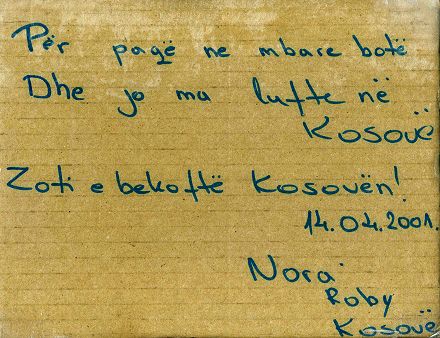 Për paqë ne mbare botë
Dhe jo ma lufte në
Kosovë
Zoti e bekoftë Kosovën!
14.04.2001.
Nora
Roby
Kosovë